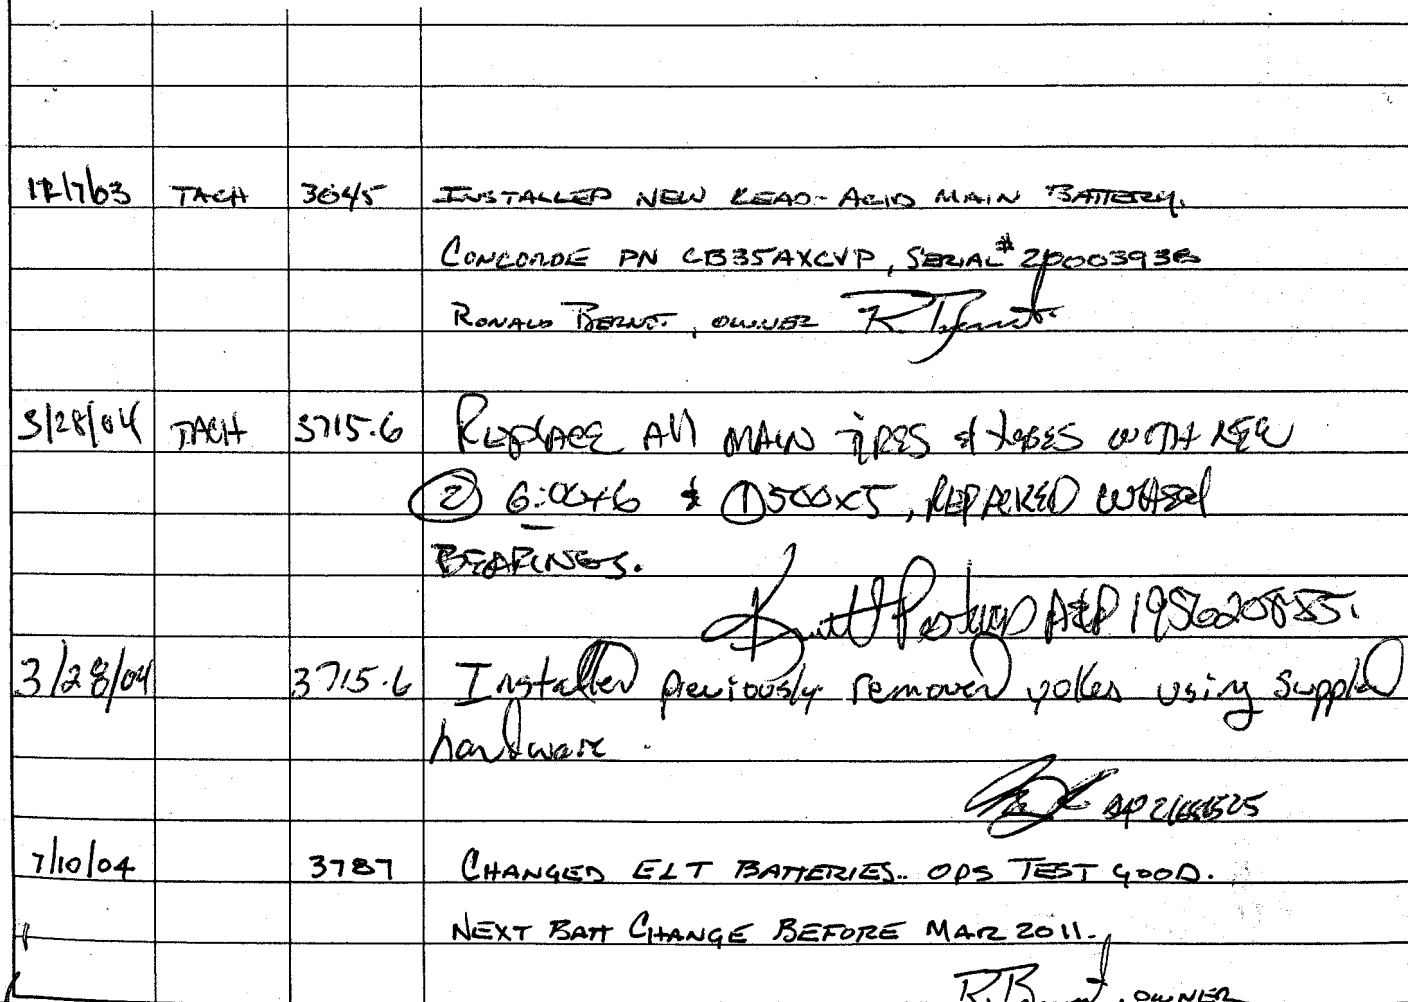 12/7/03 TACH 3645 INSTALLED NEW LEAD-ACID MAIN BATTERY.
CONCORDE PN CB35AXCVP, SERIAL# 20003936
RONALD BERNT, OWNER R. Bernt
3/28/04 TACH 3715.6 REPLACE All MAIN TIRES & TUBES WITH NEW
② 6:00x6 & ① 500x5, REPACKED WHEEL
BEARINGS.
A&P
3/28/04 3715.6 Installed previously removed yokes using supplied
hardware.
AP
7/10/04 3787 CHANGED ELT BATTERIES.. OPS TEST GOOD.
NEXT BATT CHANGE BEFORE MAR 2011.
R. Bernt, OWNER